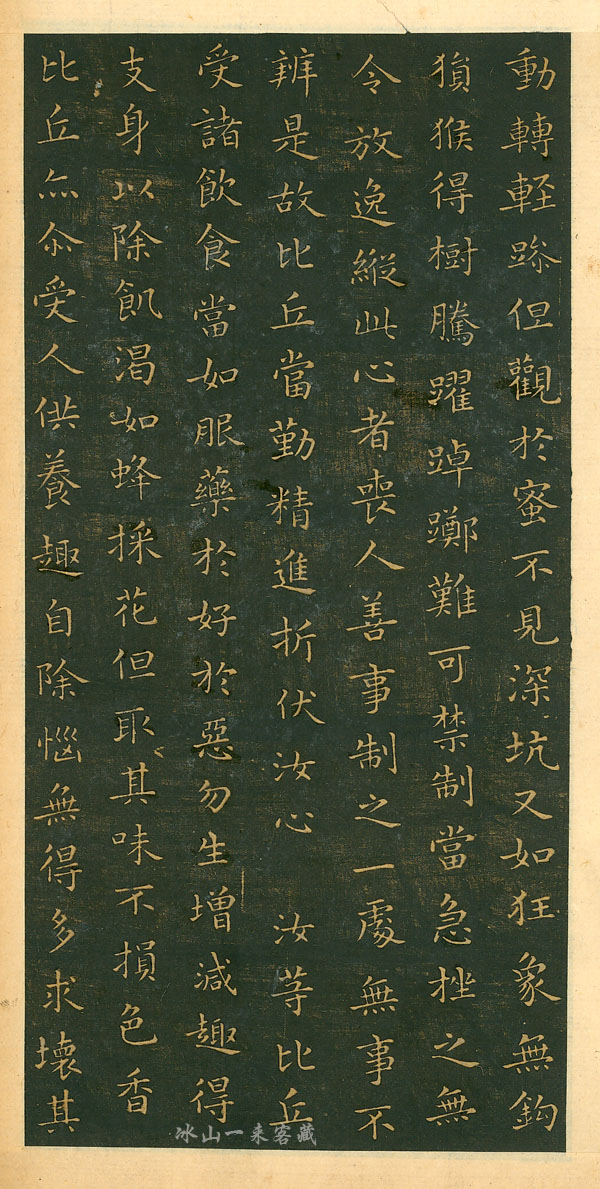 動轉軽躁但觀於蜜不見深坑又如狂象無鈎
猿猴得樹騰躍踔躑難可禁制當急挫之無
令放逸縱此心者喪人善事制之一處無事不
辦是故比丘當勤精進折伏汝心　汝等比丘
受諸飲食當如服藥於好於惡勿生增減趣得
支身以除飢渴如蜂採花但取其味不損色香
比丘亦尒受人供養趣自除惱無得多求壞其
冰山一来客藏